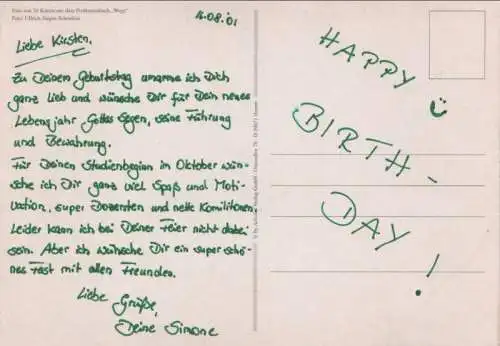 Eine von 30 Karten aus dem Postkartenbuch „Wege"
Foto: Ulrich Jürgen Schönlein
16.08.'01
Liebe Kirsten,
zu Deinem Geburtstag umarme ich Dich
ganz lieb und wünsche Dir für Dein neues
Lebensjahr Gottes Segen, seine Führung
und Bewahrung.
Für Deinen Studienbeginn im Oktober wün-
sche ich Dir ganz viel Spaß und Moti-
vation, super Dozenten und nette Komilitonen.
Leider kann ich bei Deiner Feier nicht dabei
sein. Aber ich wünsche Dir ein super schö-
nes Fest mit allen Freunden.
Liebe Grüße,
Deine Simone
HAPPY
BIRTH-
DAY!